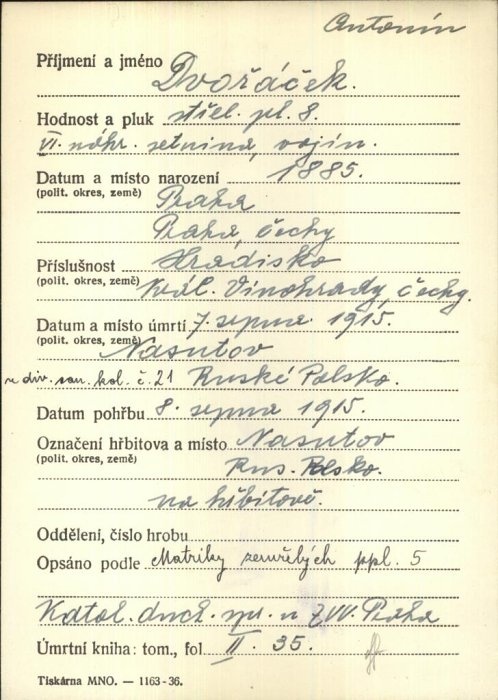 Antonín
Příjmení a jméno Dvořáček.
Hodnost a pluk střel. pl. 8.
VI. náhr. setnina, vojín.
Datum a místo narození 1885.
(polit. okres, země) Praha
Praha, Čechy
Příslušnost Hradisko
(polit. okres, země) Král. Vinohrady, Čechy.
Datum a místo úmrtí 7. srpna 1915.
(polit. okres, země) Nasutov
u div. san. kol. č. 21 Ruské Polsko.
Datum pohřbu 8. srpna 1915.
Označení hřbitova a místo Nasutov
(polit. okres, země) Rus. Polsko.
na hřbitově.
Oddělení, číslo hrobu
Opsáno podle Matriky zemřelých ppl. 5
Katol. duch. spr. u ZVV. Praha
Úmrtní kniha: tom., fol II. 35.
Tiskárna MNO. — 1163-36.